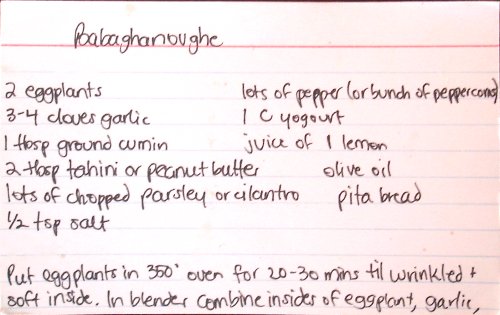 Babaghanoughe
2 eggplants
3-4 cloves garlic
1 tbsp ground cumin
2 tbsp tahini or peanut butter
lots of chopped parsley or cilantro
1/2 tsp salt
lots of pepper (or bunch of peppercorns)
1 C yogourt
juice of 1 lemon
olive oil
pita bread
Put eggplants in 350° oven for 20-30 mins til wrinkled +
soft inside. In blender combine insides of eggplant, garlic,